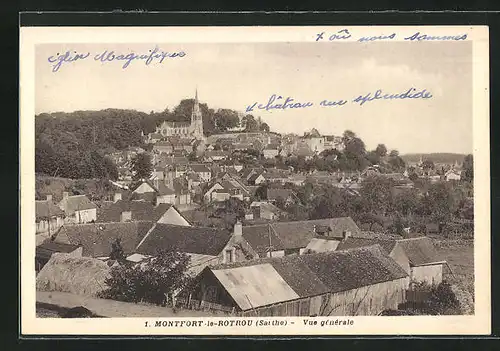 x où nous sommes
église Magnifique
château vue splendide
1. MONTFORT-le-ROTROU (Sarthe) - Vue générale